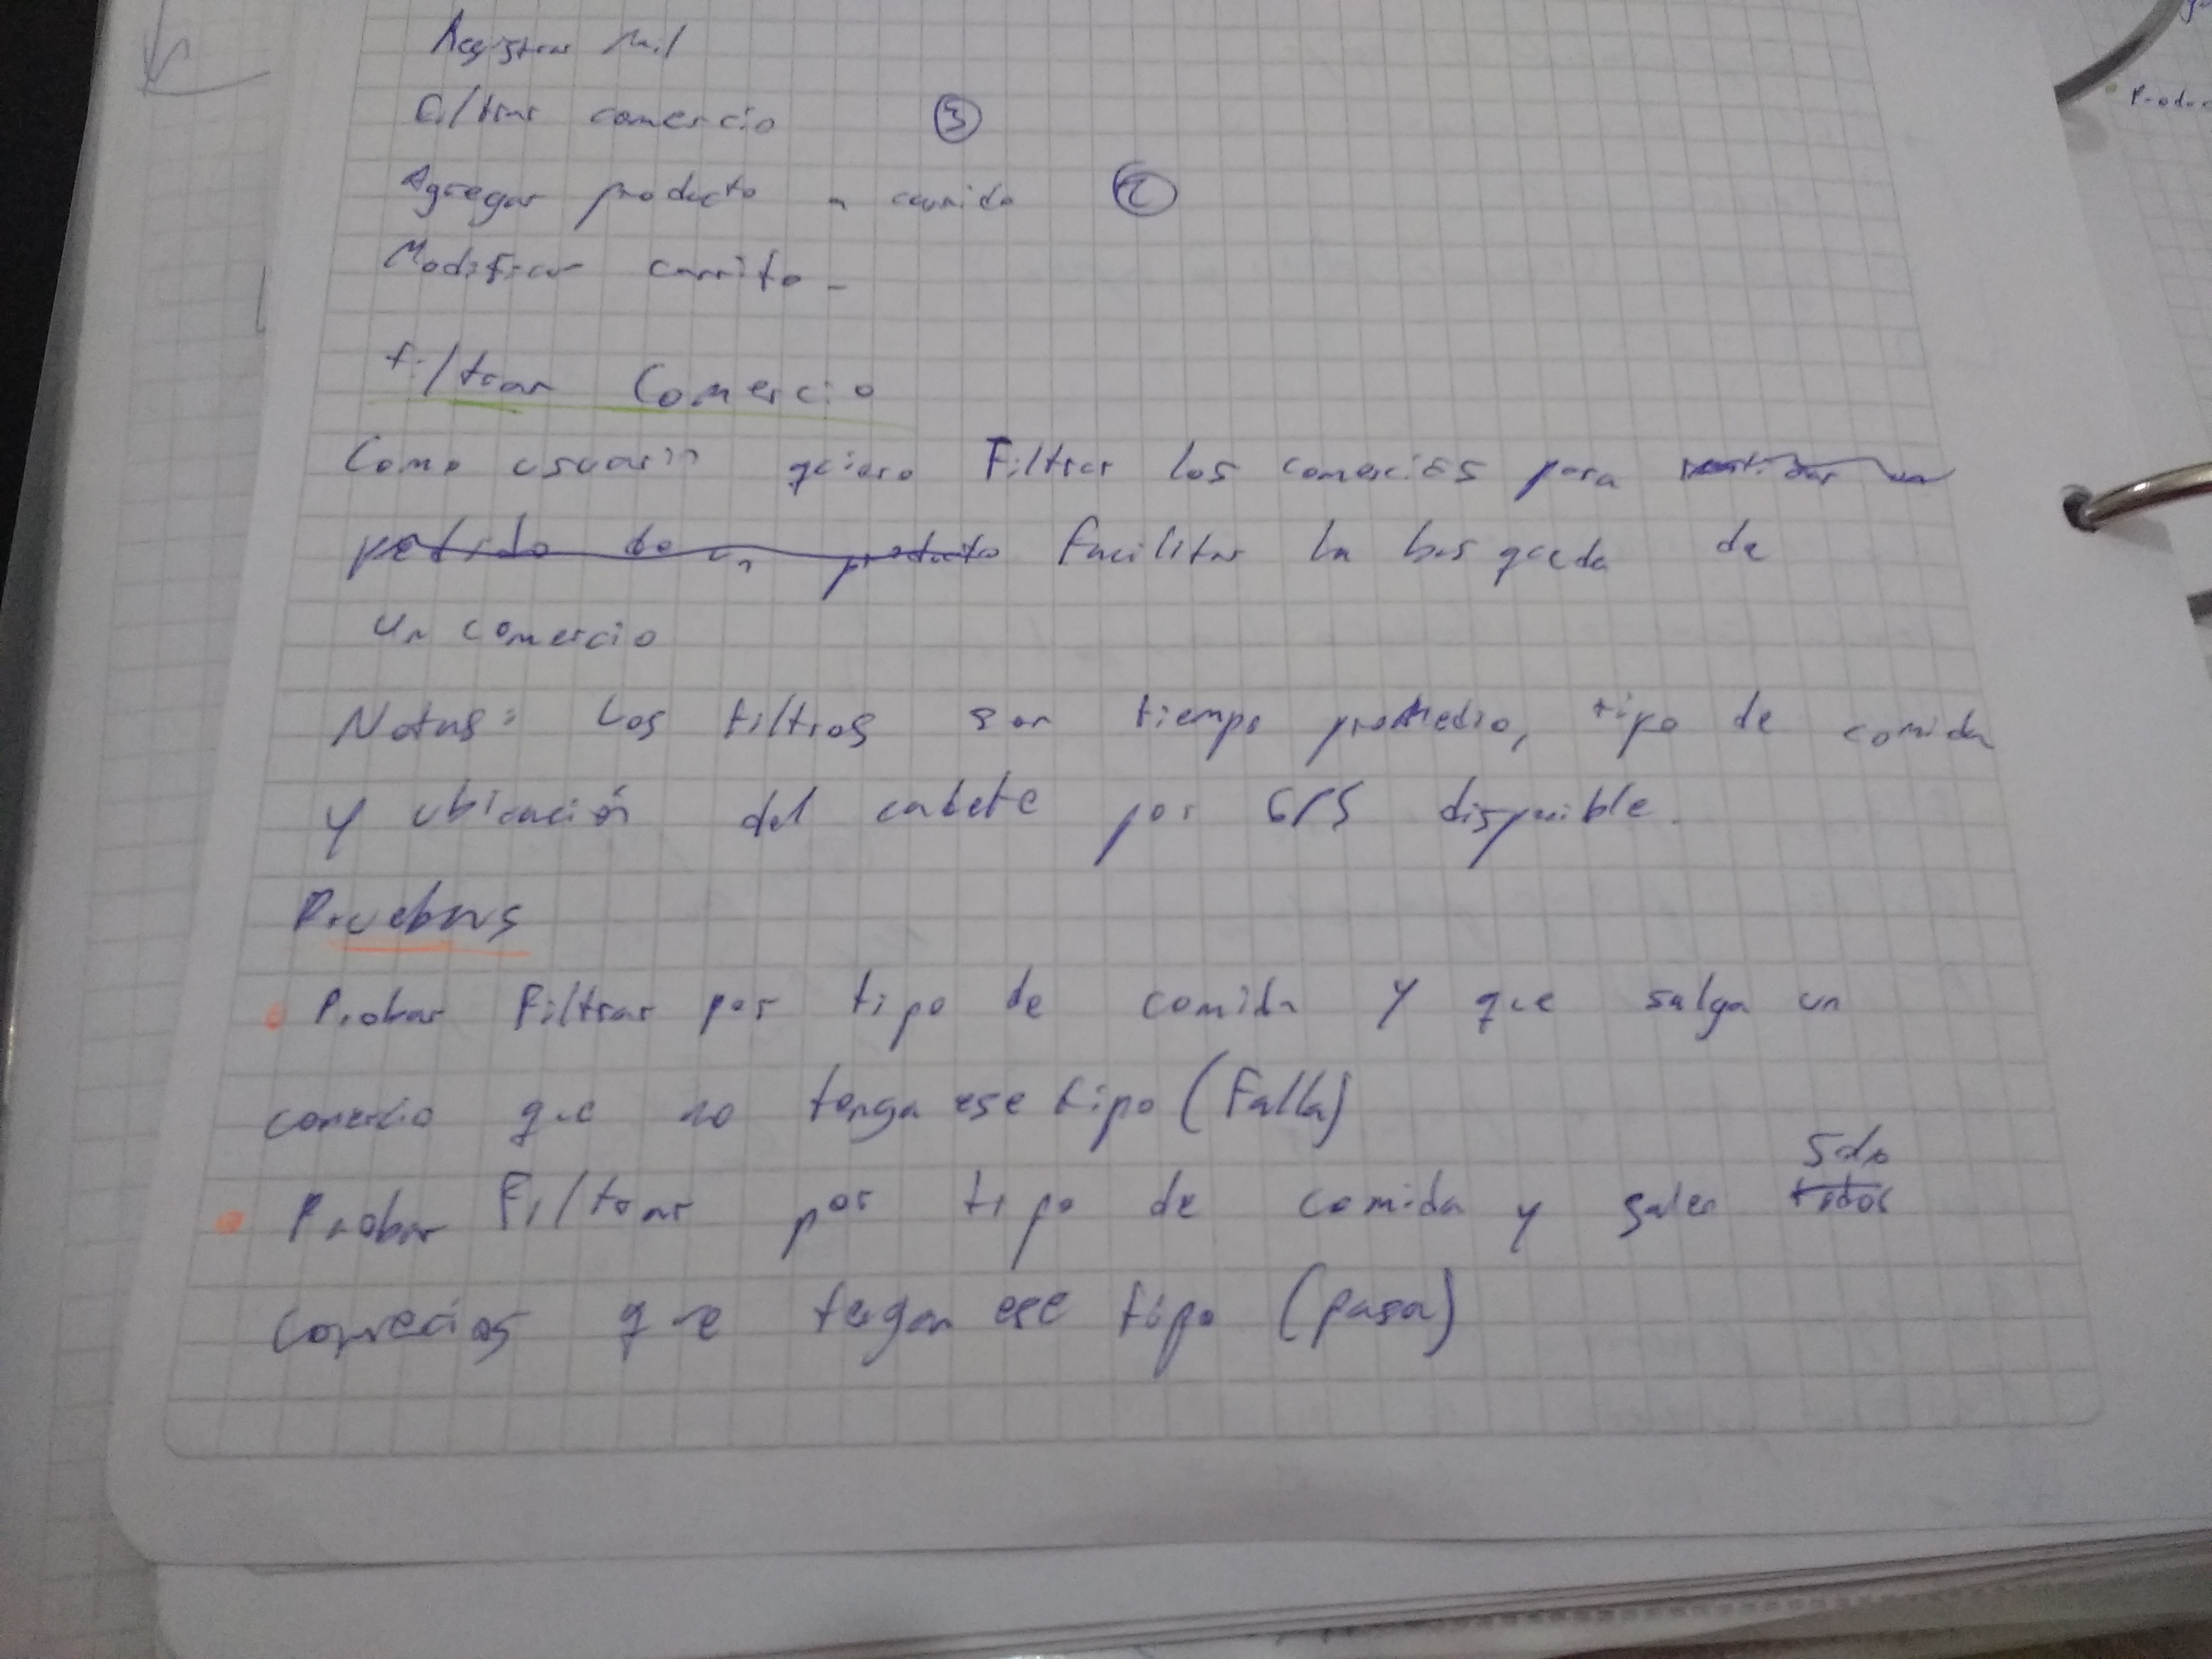 Registrar Mail
Filtrar comercio ③
Agregar producto a carrito ②
Modificar carrito -
Filtrar Comercio
Como usuario quiero Filtrar los comercios para realizar un
pedido de un producto facilitar la busqueda de
un comercio
Notas: Los filtros son tiempo promedio, tipo de comida
y ubicación del cadete por GPS disponible.
Pruebas
• Probar Filtrar por tipo de comida y que salga un
comercio que no tenga ese tipo (Falla)
Solo
• Probar Filtrar por tipo de comida y salen todos
comercios que tengan ese tipo (pasa)
Produc